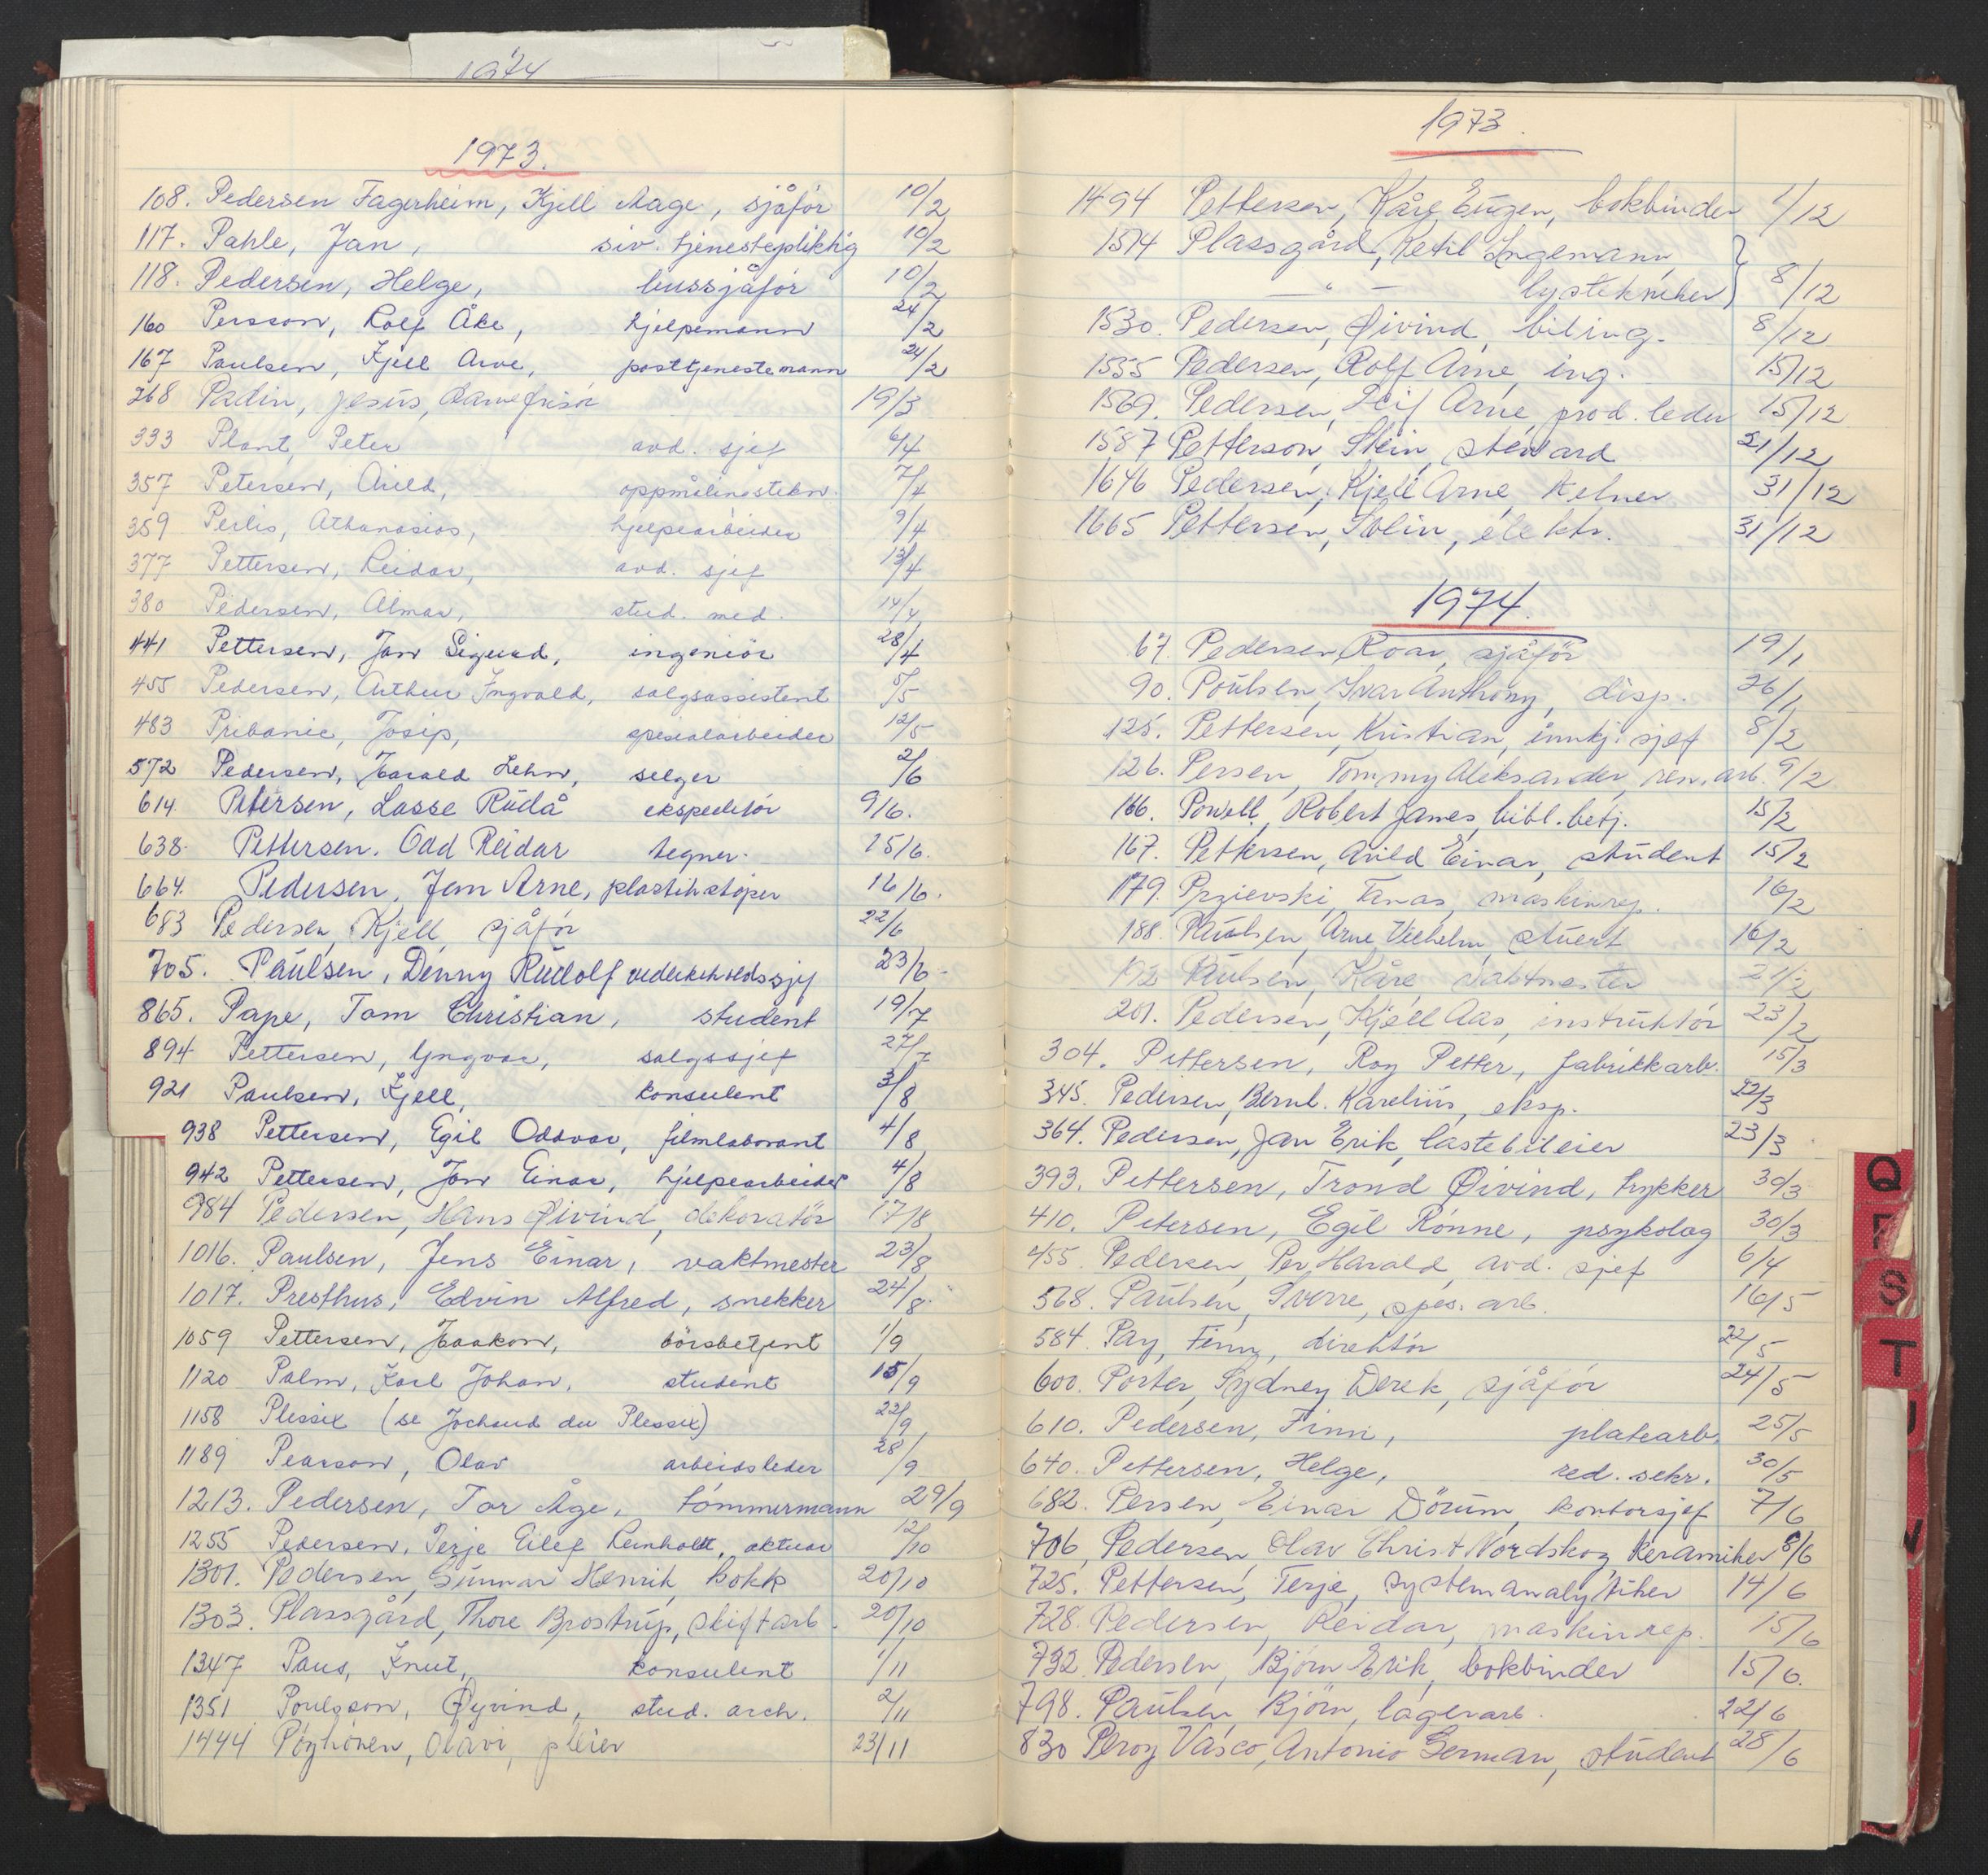 1974
1973.
108. Pedersen Fagerheim, Kjell Aage, sjåför 10/2
117. Pahle, Jan, siv. tjenestepliktig 10/2
118. Pedersen, Helge, bussjåför 10/2
160 Persson, Rolf Åke, hjelpemann 24/2
167 Paulsen, Kjell Arve, posttjenestemann 24/2
268 Padin, Jesus, damefrisör 19/3
333 Plant, Peter avd. sjef 6/4
357 Petersen, Arild, oppmålingstekn. 7/4
359 Perlis, Athanasios, hjelpearbeider 9/4
377 Pettersen, Reidar, avd. sjef 13/4
380 Pedersen, Almar, stud. med. 14/4
441 Pettersen, Jan Sigurd, ingeniör 28/4
455 Pedersen, Arthur Ingvald, salgsassistent 5/5
483 Pribanic, Josip, spesialarbeider 12/5
572 Pedersen, Harald Lehn, selger 2/6
614. Petersen, Lasse Rüdå ekspeditör 9/6.
638. Pettersen. Odd Reidar tegner. 15/6.
664. Pedersen, Jan Arne, plastikstöper 16/6.
683 Pedersen, Kjell, sjåför 22/6
705. Paulsen, Denny Rudolf vedlikeholdssjef 23/6
865. Pape, Tom Christian, student 19/7
894 Pettersen, Yngvar, salgssjef 27/7
921 Paulsen, Kjell, konsulent 3/8
938 Pettersen, Egil Oddvar, filmlaborant 4/8
942 Pettersen, Jan Einar, hjelpearbeider 4/8
984 Pedersen, Hans Øivind, dekoratör 17/8
1016. Paulsen, Jens Einar, vaktmester 23/8
1017. Presthus, Edvin Alfred, snekker 24/8.
1059 Pettersen, Haakon, börsbetjent 1/9
1120 Palm, Karl Johan, student 15/9
1158 Plessix (se Jochaud du Plessix) 22/9
1189 Pearson, Olav arbeidsleder 28/9
1213. Pedersen, Tor Åge, tömmermann 29/9
1255 Pedersen, Terje Eilef Reinholdt, aktuar 12/10
1301. Pedersen, Gunnar Henrik, kokk 20/10
1303. Plassgård, Thore Brostrup, skiftarb. 20/10
1347 Paus, Knut, konsulent 1/11
1351 Poulsson, Øyvind, stud. arch. 2/11
1444 Pöyhönen, Olavi, pleier 23/11
1973.
1494 Pettersen, Kåre Eugen, bokbinder 1/12
1514 Plassgård, Ketil Ingemann,
— " — lystekniker } 8/12
1530. Pedersen, Øivind, biling. 8/12
1555 Pedersen, Rolf Arne, ing. 15/12
1569. Pedersen, Leif Arne, prod. leder 15/12
1587 Petterson, Stein, steward 21/12
1646 Pedersen, Kjell Arne, kelner 31/12
1665 Pettersen, Solin, elektr. 31/12
1974.
67. Pedersen, Roar, sjåför 19/1
90. Poulsen, Ivar Anthony, disp. 26/1
125. Pettersen, Kristian, innkj. sjef 8/2
126. Persen, Tommy Aleksander, ren. arb. 9/2
166. Powell, Robert James, bibl. betj. 15/2
167. Pettersen, Arild Einar, student 15/2
179. Przievski, Tanas, maskinrep. 16/2
188. Paulsen, Arne Vilhelm, stuert 16/2
192 Paulsen, Kåre, vaktmester 21/2
201. Pedersen, Kjell Aas, instruktör 23/2
304. Pettersen, Roy Petter, fabrikkarb. 15/3
345. Pedersen, Bernt. Karelius, eksp. 22/3
364. Pedersen, Jan Erik, lastebileier 23/3
393. Pettersen, Trond Øivind, trykker 30/3
410. Petersen, Egil Rönne, psykolog 30/3
455. Pedersen, Per Harald, avd. sjef 6/4
568. Paulsen, Sverre, spes. arb. 16/5
584. Pay, Finn, direktör 22/5
600. Porter, Sydney Derek, sjåför 24/5
610. Pedersen, Finn, platearb. 25/5
640. Pettersen, Helge, red. sekr. 30/5
682. Persen, Einar Dörum, kontorsjef 7/6
706, Pedersen, Olav Christ Nordskog, keramiker 8/6
725. Pettersen, Terje, systemanalytiker 14/6
728. Pedersen, Reidar, maskinrep. 15/6
732. Pedersen, Björn Erik, bokbinder 15/6.
798. Paulsen, Björn, lagerarb. 22/6
830 Peroy Vasco, Antonio German, student 28/6
Q
S
T